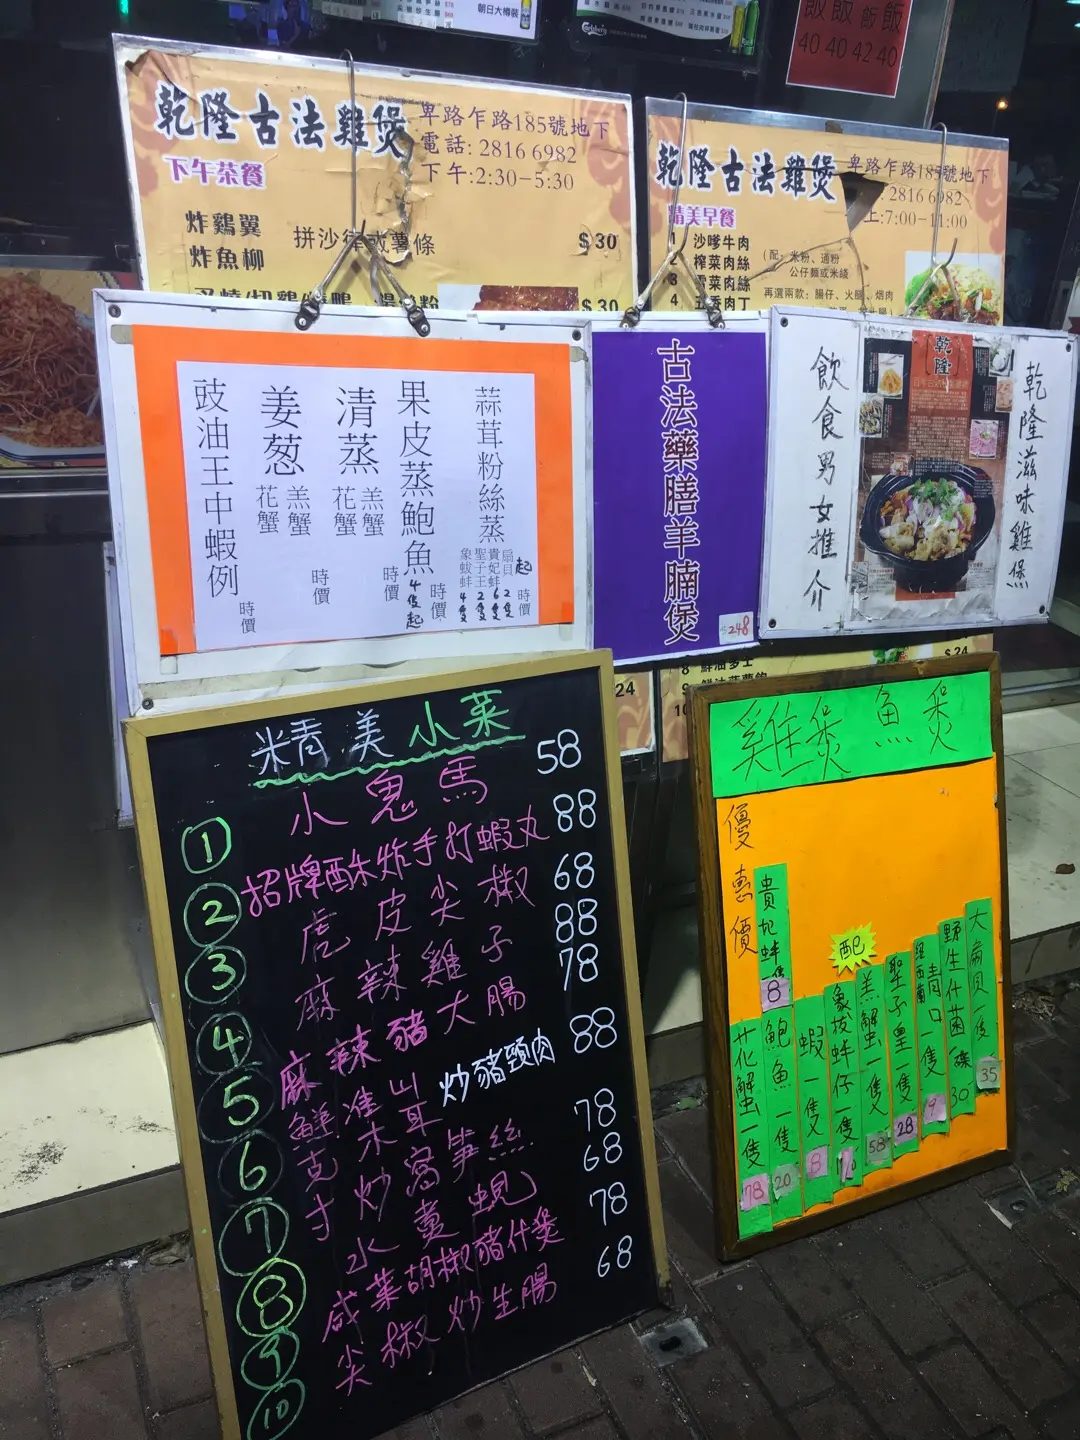 朝日大樽裝
Carlsberg
飯飯飯飯
40 40 42 40
乾隆古法雞煲
卑路乍路185號地下
電話: 2816 6982
下午:2:30-5:30
下午茶餐
炸鷄翼
炸魚柳
拼沙律或薯條
$30
$30
乾隆古法雞煲
卑路乍路185號地下
2816 6982
上:7:00-11:00
精美早餐
沙嗲牛肉
榨菜肉絲
3 雪菜肉絲
4 五香肉丁
(配: 米粉、通粉
公仔麵或米綫
再選兩款: 腸仔、火腿、烟肉
蒜茸粉絲蒸
扇貝 2隻
貴妃蚌 6隻
聖子王 2隻
象拔蚌 4隻
起
時價
果皮蒸鮑魚 4隻起
時價
清蒸
羔蟹
花蟹
時價
姜葱
羔蟹
花蟹
時價
豉油王中蝦例
時價
古法藥膳羊腩煲
$248
乾隆滋味雞煲
乾隆
飲食男女推介
24
8 鮮油多士
9
10
$24
精美小菜
1 小鬼馬 58
2 招牌酥炸手打蝦丸 88
3 虎皮尖椒 68
4 麻辣雞子 88
5 麻辣豬大腸 78
6 鮮淮山木耳炒豬頸肉 88
7 炒窩筍絲 78
8 水蜆 68
9 咸菜胡椒豬什煲 78
10 尖椒炒生腸 68
雞煲 魚煲
優惠價
配
大扇貝一隻 35
野生什菌一碟 30
紐西蘭青口一隻 9
聖子皇一隻 28
羔蟹一隻 58
象拔蚌仔一隻
蝦一隻 8
鮑魚一隻 20
貴妃蚌一隻 8
花蟹一隻 78